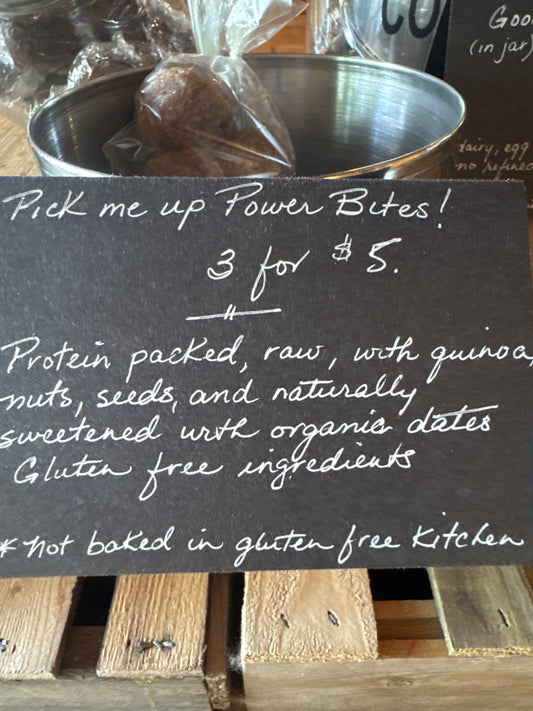 CO
Goo
(in jar)
dairy, egg
no refined
Pick me up Power Bites!
3 for $5.
Protein packed, raw, with quinoa,
nuts, seeds, and naturally
sweetened with organic dates
Gluten free ingredients
* not baked in gluten free kitchen